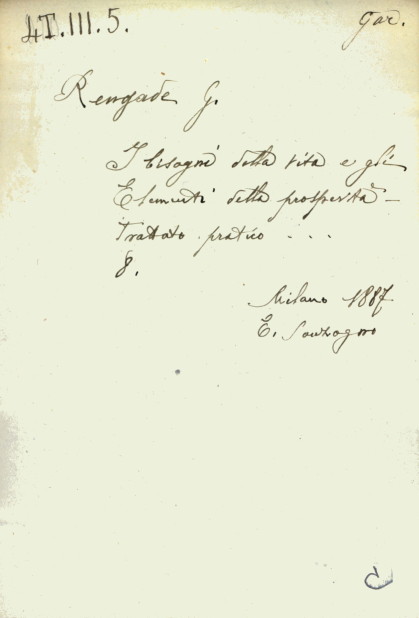 4T.III.5.
Gar.
Rengade G.
I bisogni della vita e gli
Elementi della prosperità —
Trattato pratico . . .
8.
Milano 1887
E. Sonzogno
C